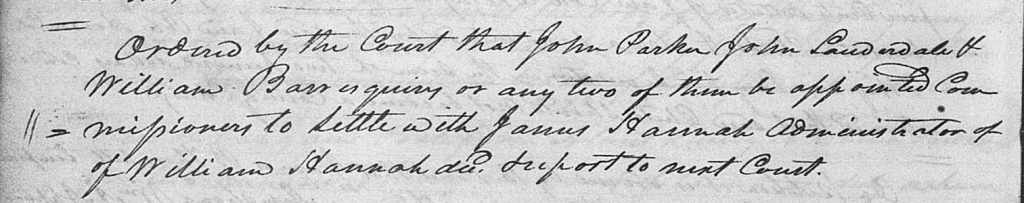 Ordered by the Court that John Parker John Lauderdale &
William Barr esquires or any two of them be appointed Com
missioners to settle with James Hannah Administrator of
of William Hannah decd. & report to next Court.